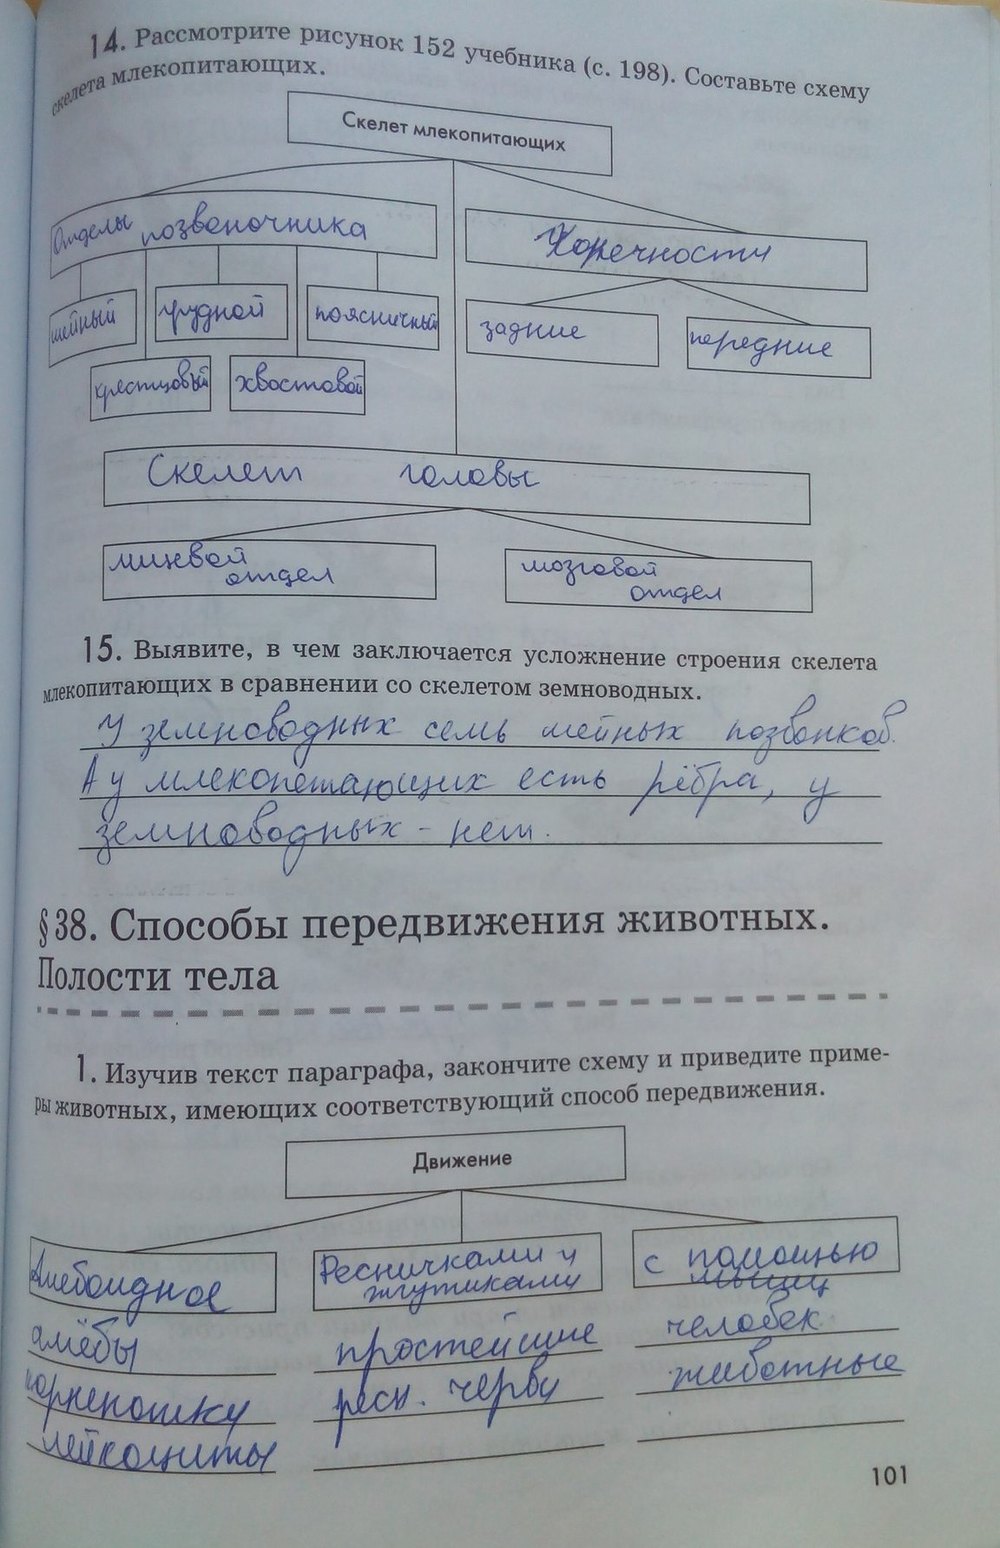 14. Рассмотрите рисунок 152 учебника (с. 198). Составьте схему
скелета млекопитающих.
Скелет млекопитающих
Отделы позвоночника
Конечности
шейный
грудной
поясничный
задние
передние
крестцовый
хвостовой
Скелет головы
лицевой
отдел
мозговой
отдел
15. Выявите, в чем заключается усложнение строения скелета
млекопитающих в сравнении со скелетом земноводных.
У земноводных семь шейных позвонков.
А у млекопетающих есть рёбра, у
земноводных - нет.
§ 38. Способы передвижения животных.
Полости тела
1. Изучив текст параграфа, закончите схему и приведите приме-
ры животных, имеющих соответствующий способ передвижения.
Движение
Амебоидное
Ресничками и
жгутиками
с помощью
мышц
амёбы
корненошку
лейкоциты
простейшие
ресн. черви
человек
животные
101